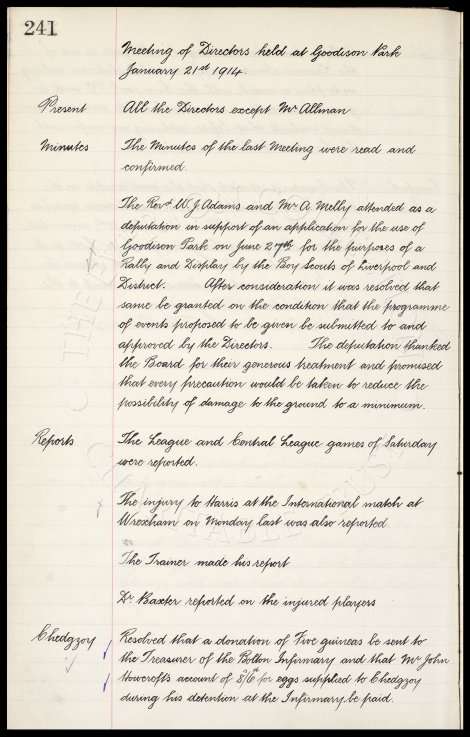 241
Meeting of Directors held at Goodison Park
January 21st 1914
Present All the Directors except Mr Allman
Minutes The Minutes of the last Meeting were read and
confirmed.
The Revd W. J. Adams and Mr A. Melly attended as a
deputation in support of an application for the use of
Goodison Park on June 27th for the purposes of a
Rally and Display by the Boy Scouts of Liverpool and
District. After consideration it was resolved that
same be granted on the condition that the programme
of events proposed to be given be submitted to and
approved by the Directors. The deputation thanked
the Board for their generous treatment and promised
that every precaution would be taken to reduce the
possibility of damage to the ground to a minimum.
Reports The League and Central League games of Saturday
were reported.
The injury to Harris at the International match at
Wrexham on Monday last was also reported
The Trainer made his report
Dr Baxter reported on the injured players
Chedgzoy Resolved that a donation of Five guineas be sent to
the Treasurer of the Bolton Infirmary and that Mr John
Howcroft's account of 8/6d for eggs supplied to Chedgzoy
during his detention at the Infirmary be paid.